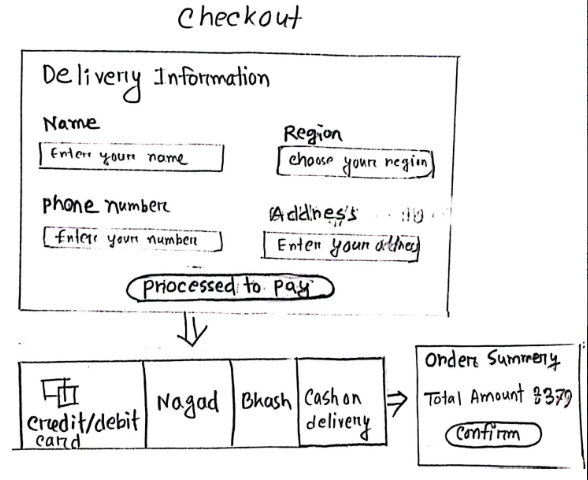 Checkout
Delivery Information
Name
Enter your name
Region
choose your region
phone number
Enter your number
Address
Enter your addres
processed to pay
credit/debit
card
Nagad
Bkash
Cash on
delivery
Order Summery
Total Amount : 379
Confirm